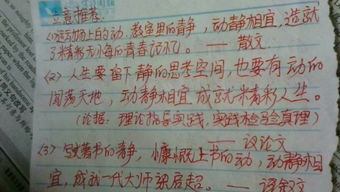 立意推荐：
(1)运动场上的动，教室里的静，动静相宜，造就
了精彩无悔的青春记忆。—— 散文
(2) 人生要留下静的思考空间，也要有动的
闯荡天地，动静相宜成就精彩人生。
(论据：理论指导实践，实践检验真理)
—— 议论文
(3) 写书著书的静，慷慨上书的动，动静相
宜，成就一代大师梁启超。——